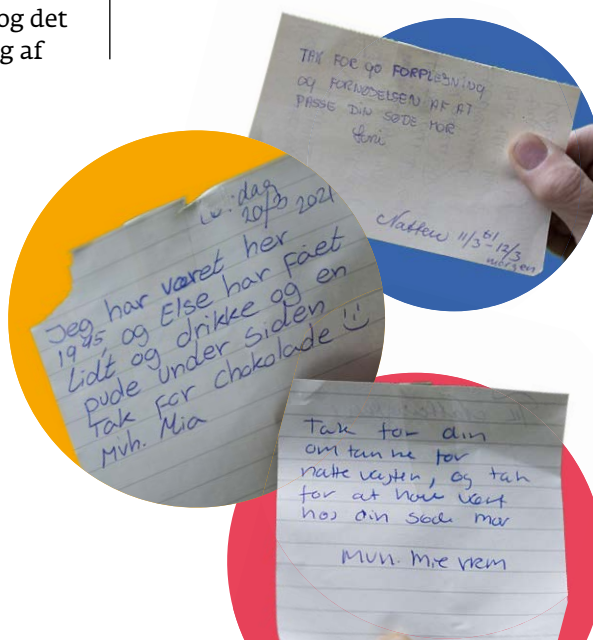 og det
g af
TAK FOR GO FORPLEJNING
OG FORNØJELSEN AF AT
PASSE DIN SØDE MOR
Natten 11/3-12/3
morgen
20/3 2021
Jeg har været her
1945, og Else har fået
Lidt og drikke og en
pude under siden
Tak for chokolade
Mvh. Mia
Tak for din
omtanke for
nattevagten, og tak
for at have vært
hos din søde mor
Mvh. Mie